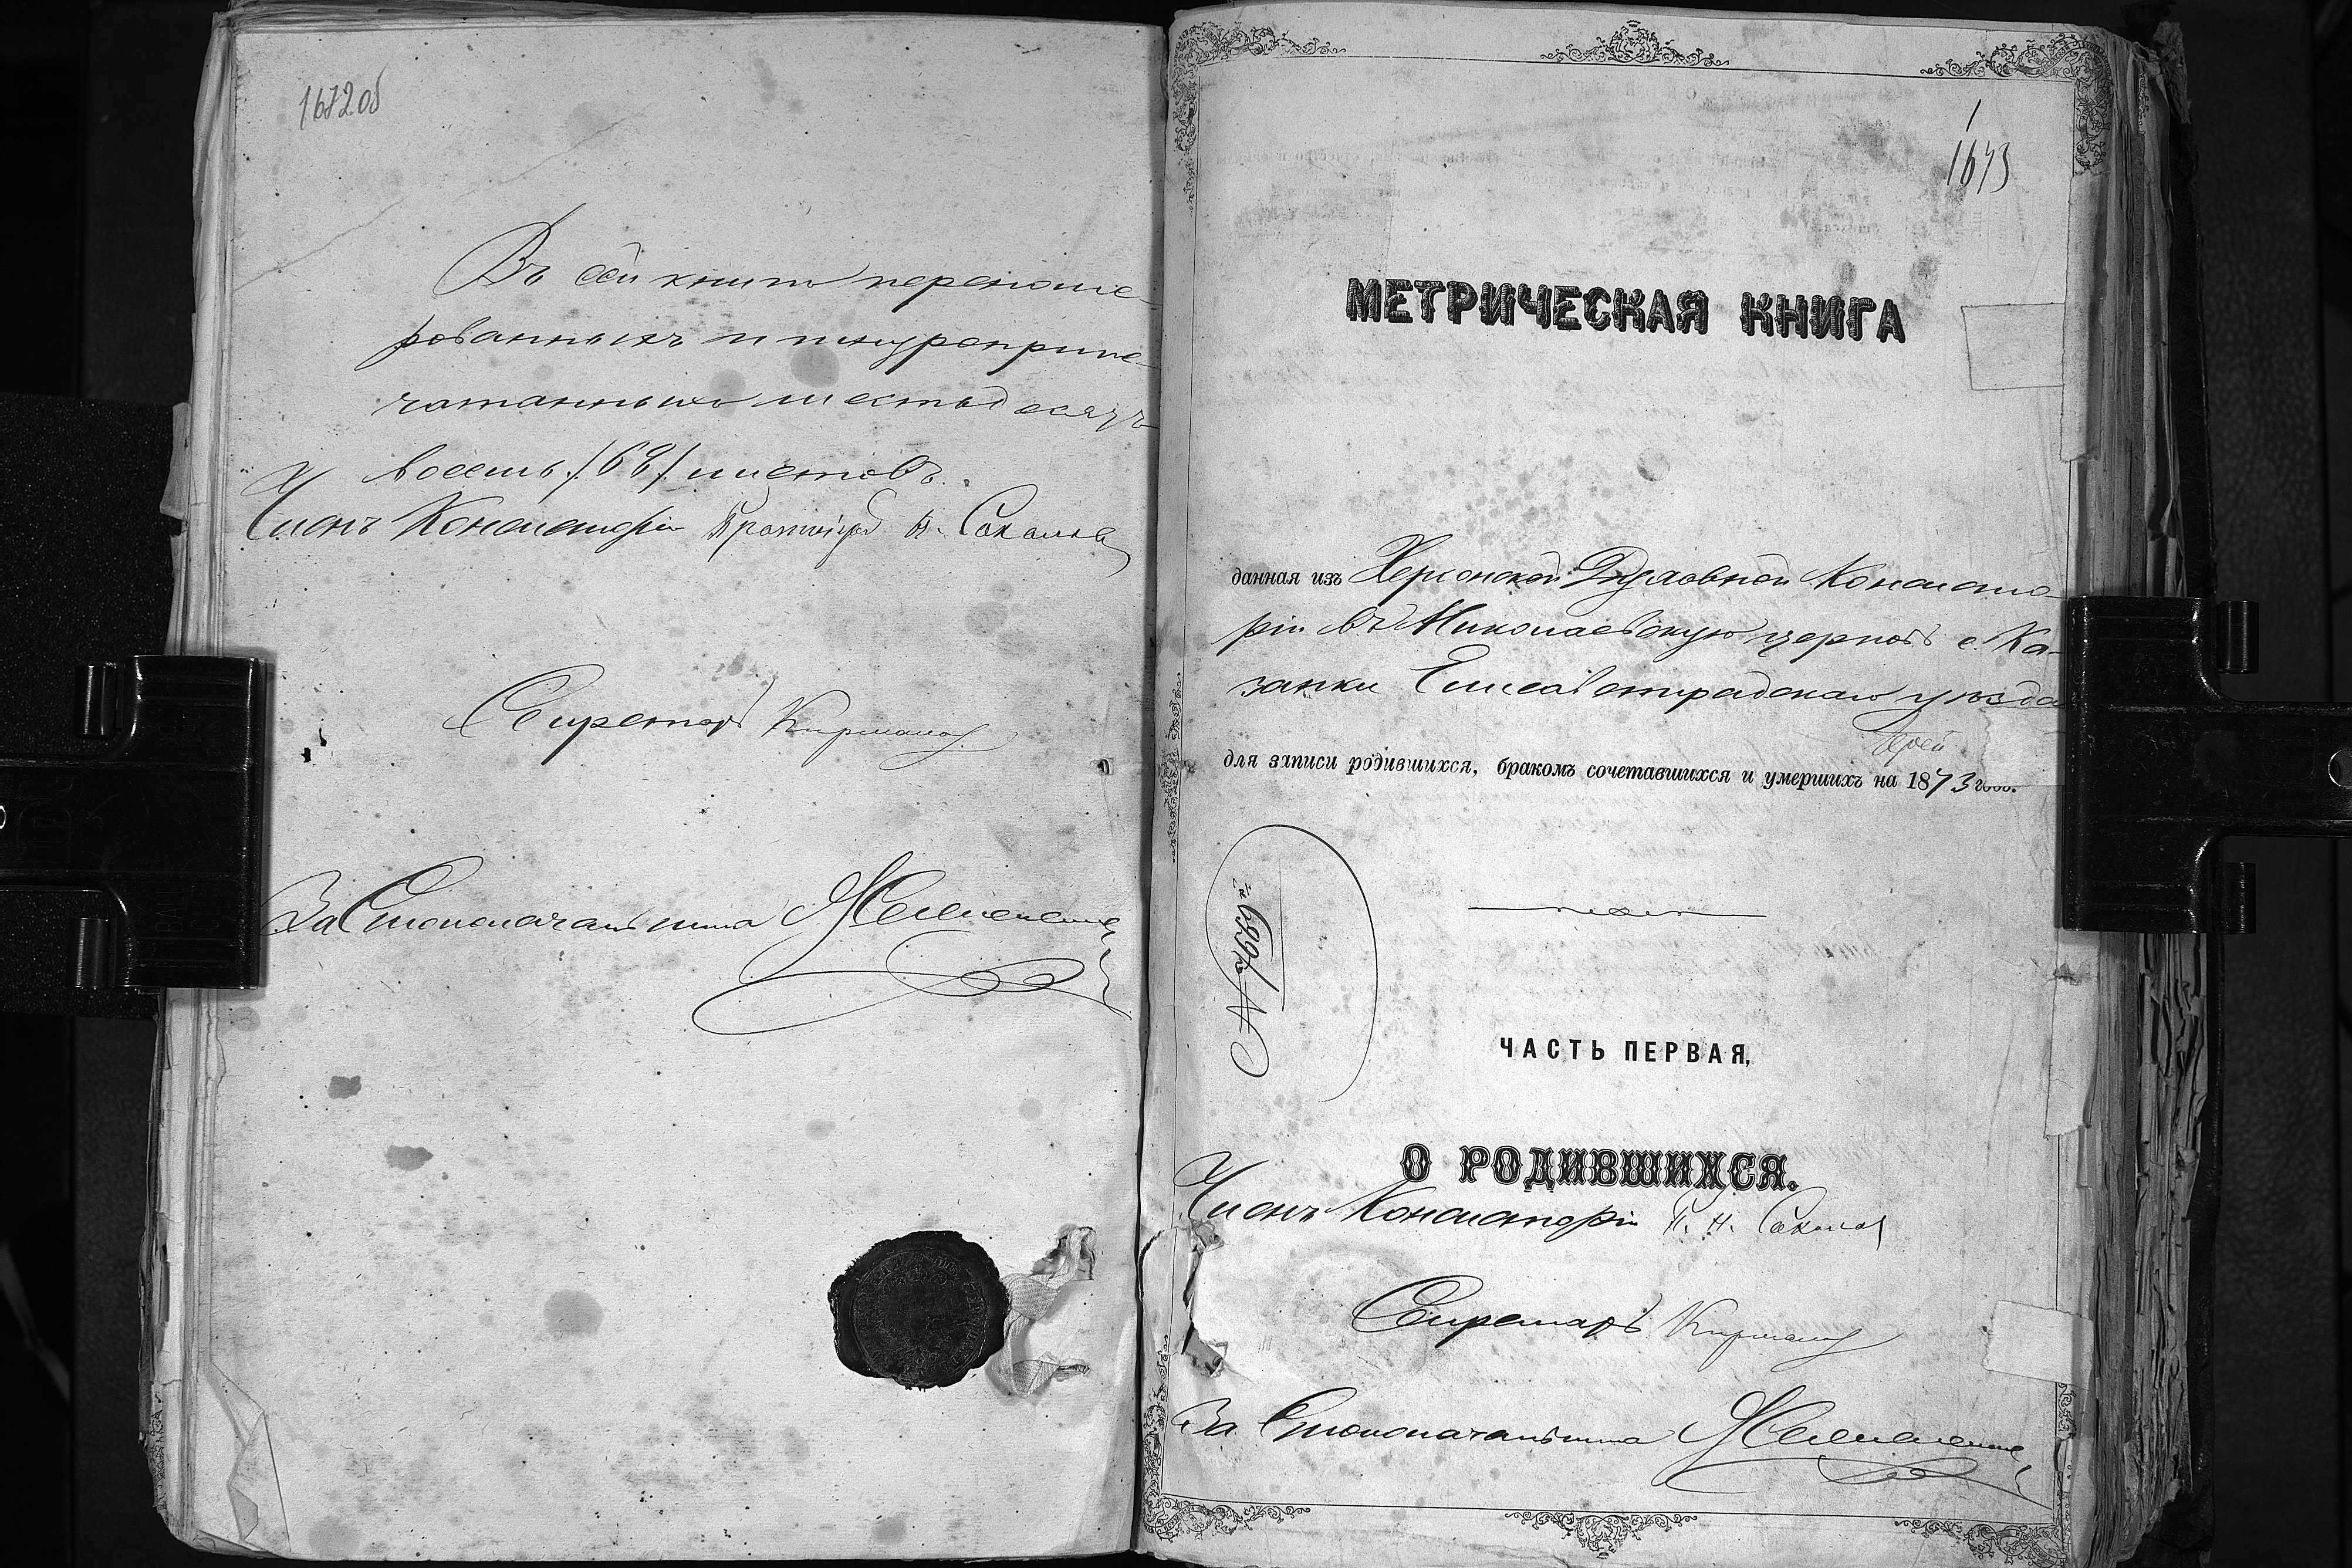 167 205
Въ сей книгѣ перенуме-
рованныхъ и шнуроприпе-
чатанныхъ шестьдесятъ
восемь /68/ листовъ.
Членъ Консисторіи Протоіерей Н. Соколовъ
Секретарь
За Столоначальника
1
1673
МЕТРИЧЕСКАЯ КНИГА
данная изъ Херсонской Духовной Консисто-
ріи въ Николаевскую церковь с. Ка-
занки Елисаветградскаго уѣзда
для записи родившихся, бракомъ сочетавшихся и умершихъ на 1873 годъ.
ЧАСТЬ ПЕРВАЯ,
О РОДИВШИХСЯ.
Членъ Консисторіи П. Н. Соколовъ
Секретарь
За Столоначальника